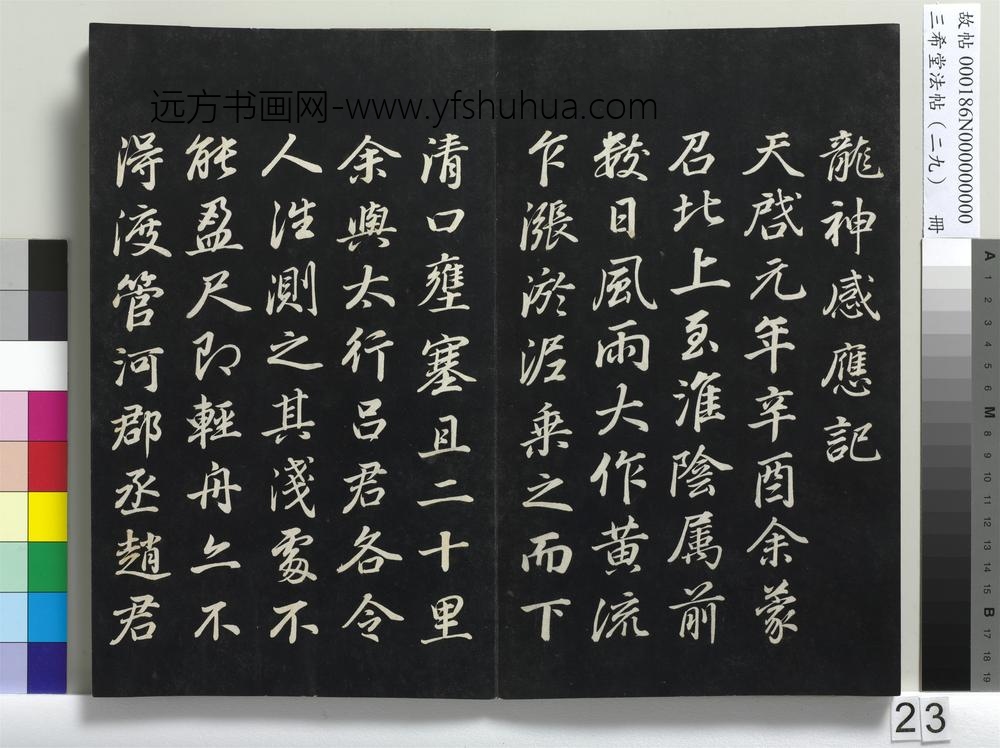 龍神感應記
天啓元年辛酉余蒙
召北上至淮陰属前
數日風雨大作黄流
乍漲淤泥乗之而下
清口壅塞且二十里
余與太行吕君各令
人往測之其淺處不
能盈尺即輕舟亦不
得渡管河郡丞趙君
远方书画网-www.yfshuhua.com
故帖 000186N000000000
三希堂法帖(二九) 冊
A 1 2 3 4 5 6 M 8 9 10 11 12 13 14 15 B 17 18 19
23